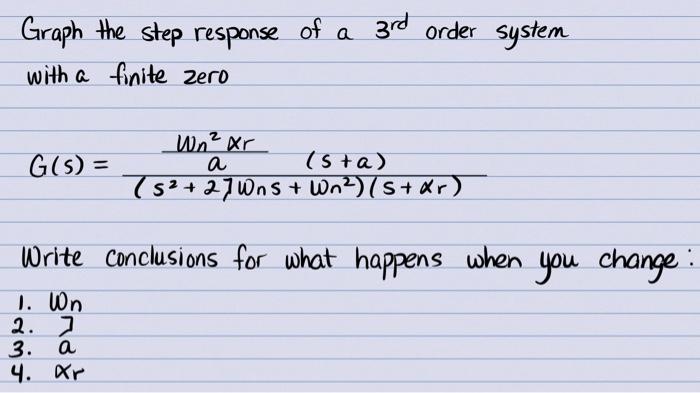 Graph the step response of a 3rd order system
with a finite zero
G(s) = \frac{\frac{Wn² αr}{a} (s + a)}{(s² + 2ζWns + Wn²)(s + αr)}
Write conclusions for what happens when you change :
1. Wn
2. ζ
3. a
4. αr